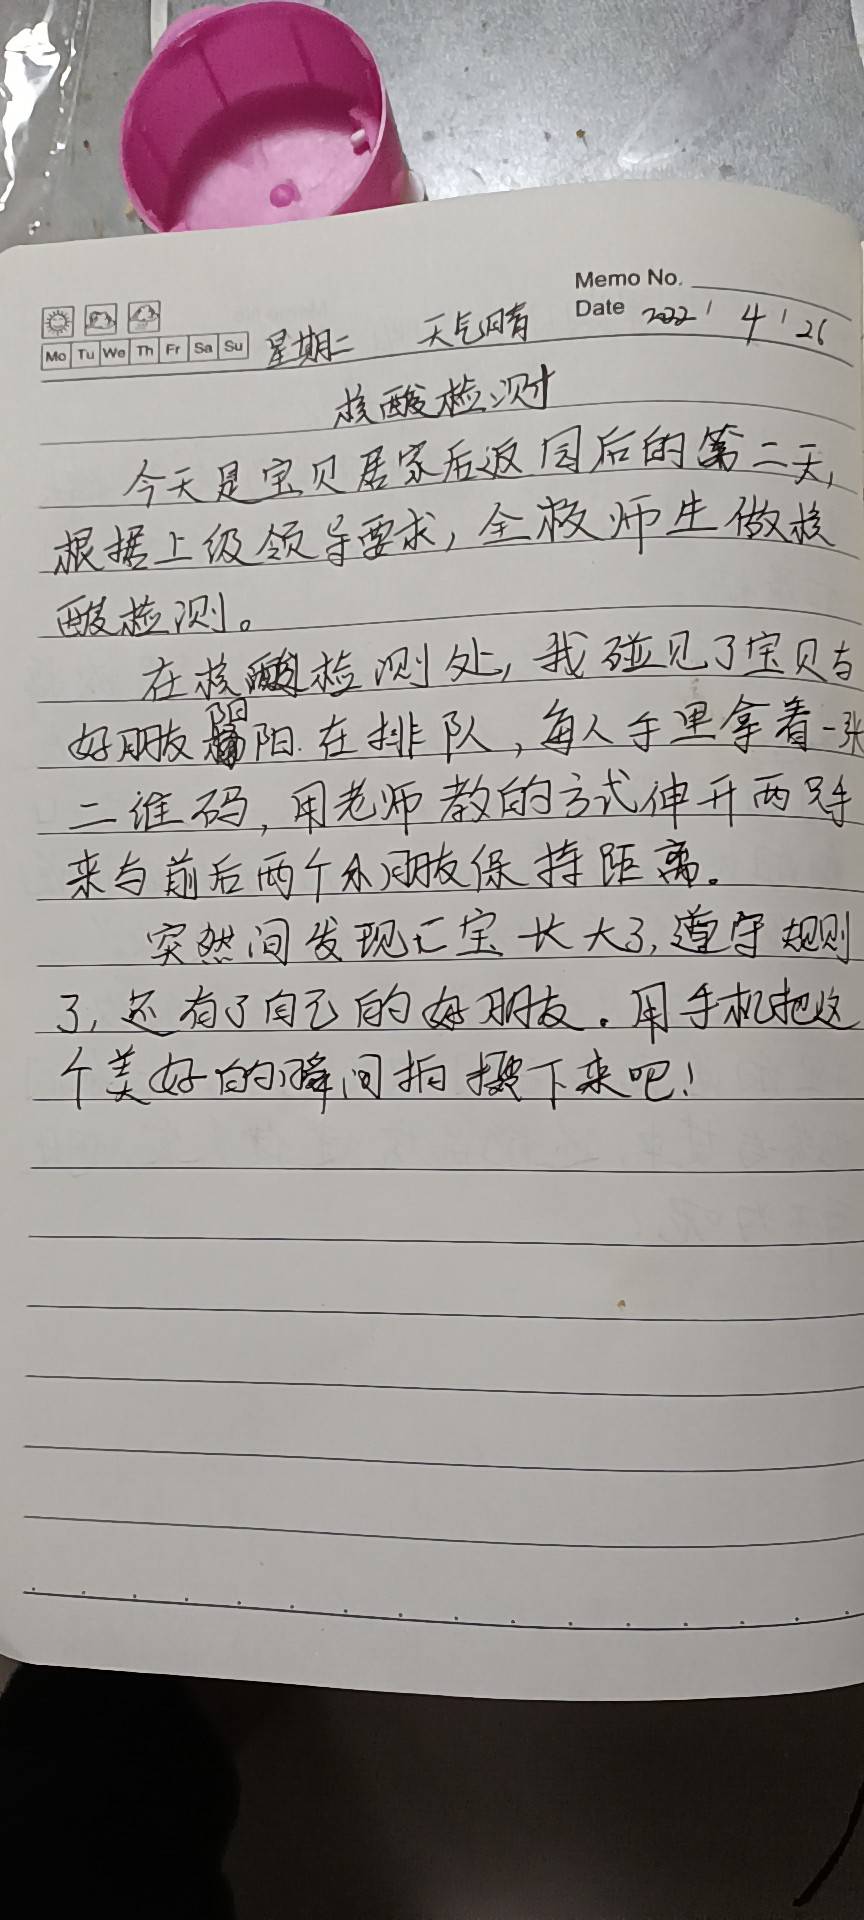 Memo No.
Date 2022 / 4 / 26
Mo Tu We Th Fr Sa Su 星期二 天气晴
核酸检测
今天是宝贝居家后返园后的第二天,
根据上级领导要求,全校师生做核
酸检测。
在核酸检测处,我碰见了宝贝与
好朋友阳阳.在排队,每人手里拿着一张
二维码,用老师教的方式伸开两只手
来与前后两个小朋友保持距离。
突然间发现仁宝长大了,遵守规则
了,还有了自己的好朋友.用手机把这
个美好的瞬间拍摄下来吧!